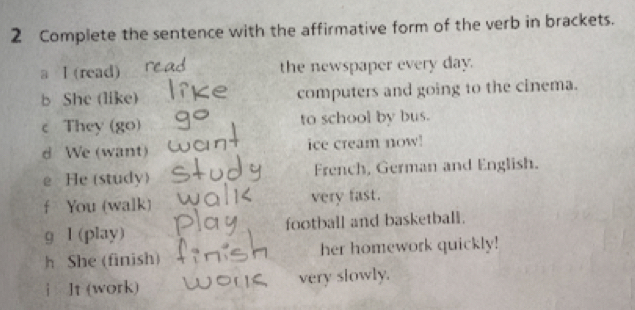 2 Complete the sentence with the affirmative form of the verb in brackets.
a I (read) read the newspaper every day.
b She (like) like computers and going to the cinema.
c They (go) go to school by bus.
d We (want) want ice cream now!
e He (study) study French, German and English.
f You (walk) walk very fast.
g I (play) play football and basketball.
h She (finish) finish her homework quickly!
i It (work) work very slowly.